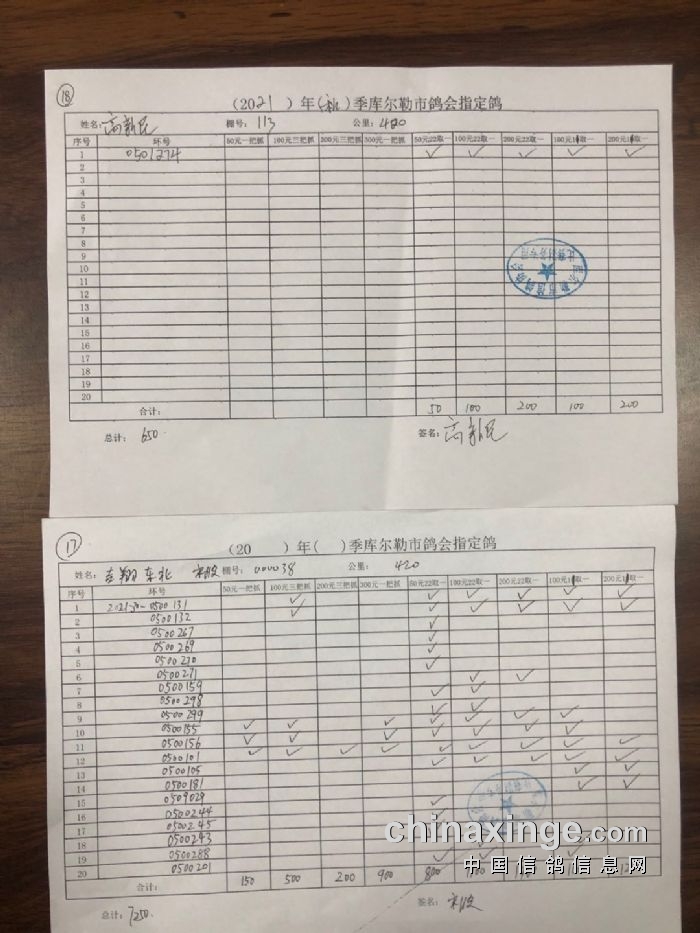 18
(2021)年(秋)季库尔勒市鸽会指定鸽
姓名: 高新民 棚号: 113 公里: 420
序号 环号 50元一把抓 100元三把抓 200元三把抓 300元一把抓 50元22取一 100元22取一 200元22取一 100元11取一 200元11取一
1 0501274 ✓ ✓ ✓ ✓ ✓
2
3
4
5
6
7
8
9
10
11
12
13
14
15
16
17
18
19
20
合计: 50 100 200 100 200
总计: 650 签名: 高新民
17
(20 )年( )季库尔勒市鸽会指定鸽
姓名: 棚号: 000038 公里: 420
序号 环号 50元一把抓 100元三把抓 200元三把抓 300元一把抓 50元22取一 100元22取一 200元22取一 100元11取一 200元11取一
1 2021-30-0500131
2 0500132
3 0500267
4 0500269
5 0500270
6 0500271
7 0500159
8 0500298
9 0500299
10 0500155
11 0500156
12 0500101
13 0500105
14 0500181
15 0509029
16 0500244
17 0500245
18 0500243
19 0500288
20 0500201
合计: 150 500 200 900 800
总计: 7250 签名:
chinaxinge.com
中国信鸽信息网